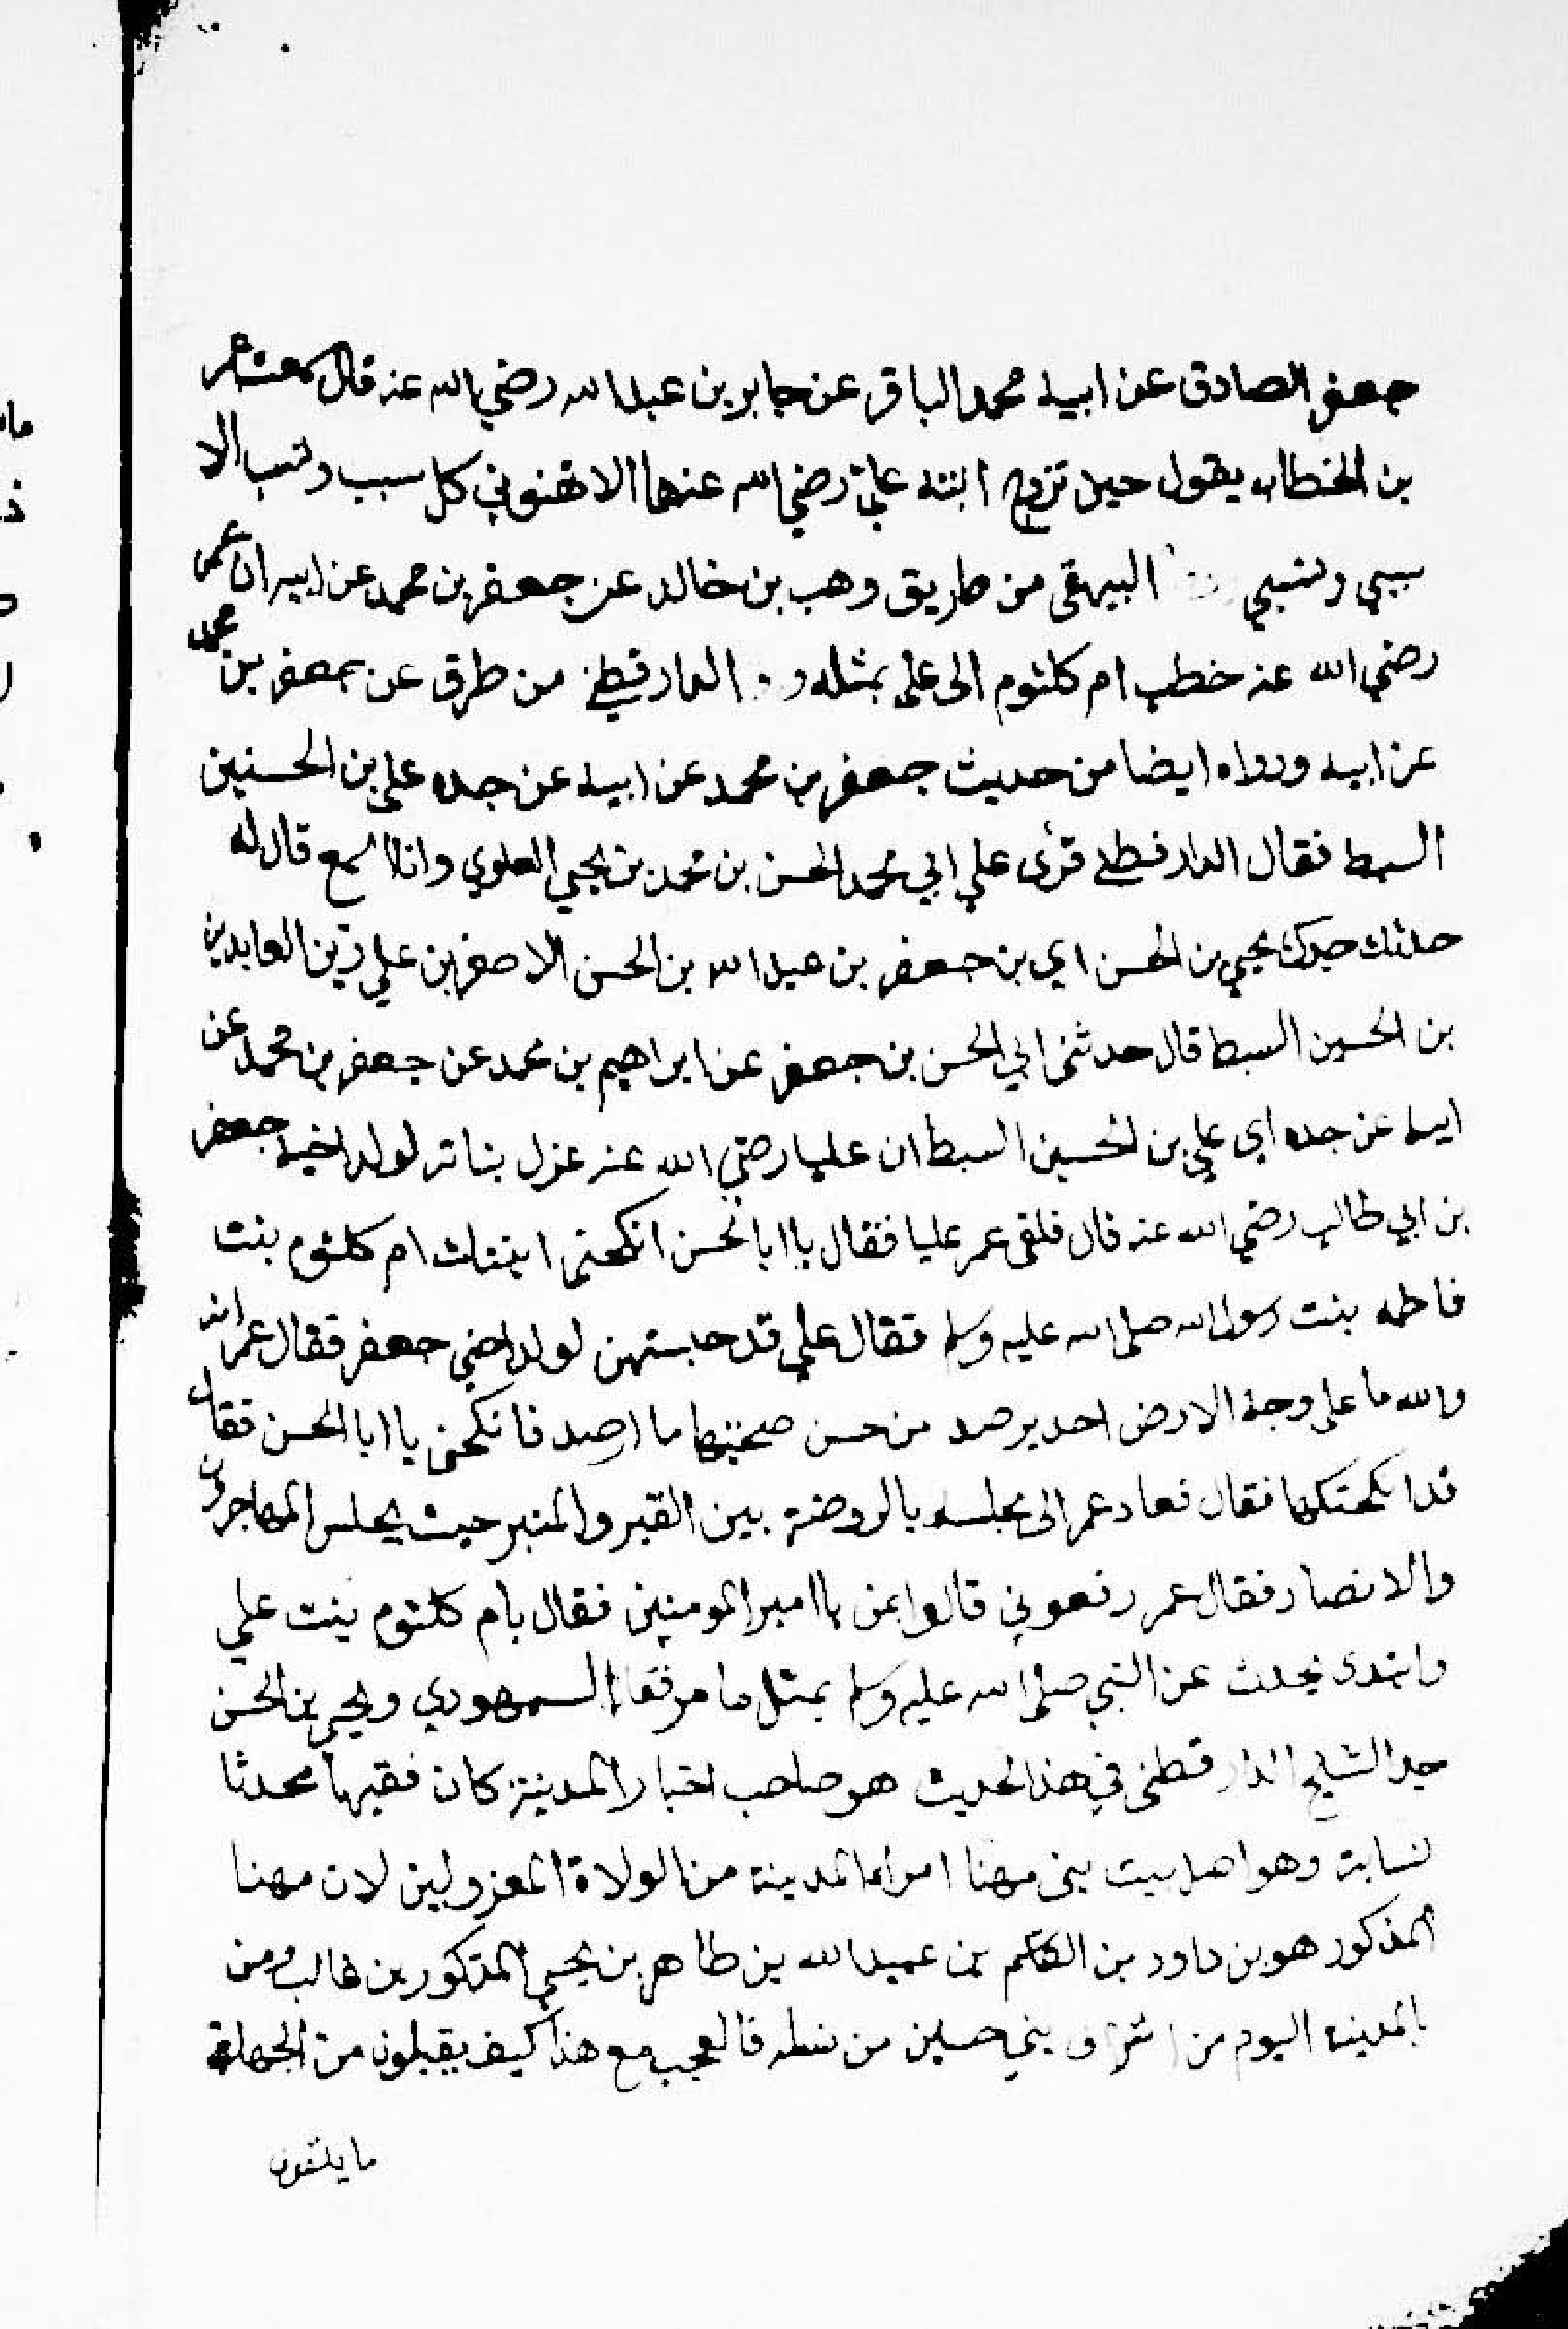 جعفر الصادق عن ابيه محمد الباقر عن جابر بن عبد الله رضي الله عنه قال سمعت عمر
بن الخطاب يقول حين تزوج ابنته علي رضي الله عنهما الا تهنوني كل سبب ونسب الا
سببي ونسبي البيهقى من طريق وهب بن خالد عن جعفر بن محمد عن ابيه ان عمر
رضي الله عنه خطب ام كلثوم الى علي بمثله و الدارقطني من طرق عن جعفر بن محمد
عن ابيه ورواه ايضا من حديث جعفر بن محمد عن ابيه عن جده علي بن الحسنين
السبط فقال الدارقطني قرئ علي ابي محمد الحسن بن محمد بن يحيي العلوي وانا اسمع قال له
حدثك جدك يحيي بن الحسن اي بن جعفر بن عبيد الله بن الحسن الاصغر بن علي زين العابدين
بن الحسين السبط قال حدثنى ابي الحسن بن جعفر عن ابراهيم بن محمد عن جعفر بن محمد عن
ابيه عن جده اي علي بن الحسين السبط ان عليا رضي الله عنه عزل بناته لولد اخيه جعفر
بن ابي طالب رضي الله عنه قال فلقى عمر عليا فقال يا ابا الحسن انكحنى ابنتك ام كلثوم بنت
فاطمه بنت رسول الله صلى الله عليه وسلم فقال علي قد حبستهن لولد اخي جعفر فقال عمر انه
والله ما على وجه الارض احد يرصد من حسن صحبتها ما ارصد فانكحني يا ابا الحسن فقال
قد انكحتكها فقال فعاد عمر الى مجلسه بالروضة بين القبر والمنبر حيث يجلس المهاجرون
والانصار فقال عمر رفعوني قالوا بمن يا امير المومنين فقال بام كلثوم بنت علي
وابتدى يحدث عن النبي صلى الله عليه وسلم بمثل ما مر فقال السمهودي ويحيي بن الحسن
جد الشيخ الدارقطنى في هذ الحديث هو صاحب اخبار المدينة كان فقيها محدثا
نسابة وهو اصل بيت بنى مهنا امراء المدينة من الولاة المعزولين لان مهنا
المذكور هو بن داود بن القاسم بن عبيد الله بن طاهر بن يحيي المذكور بن غالب ومن
بالمدينه اليوم من اشراف بني حسين من نسله فالعجب مع هذا كيف يقبلون من الجهلة
ما يلقون